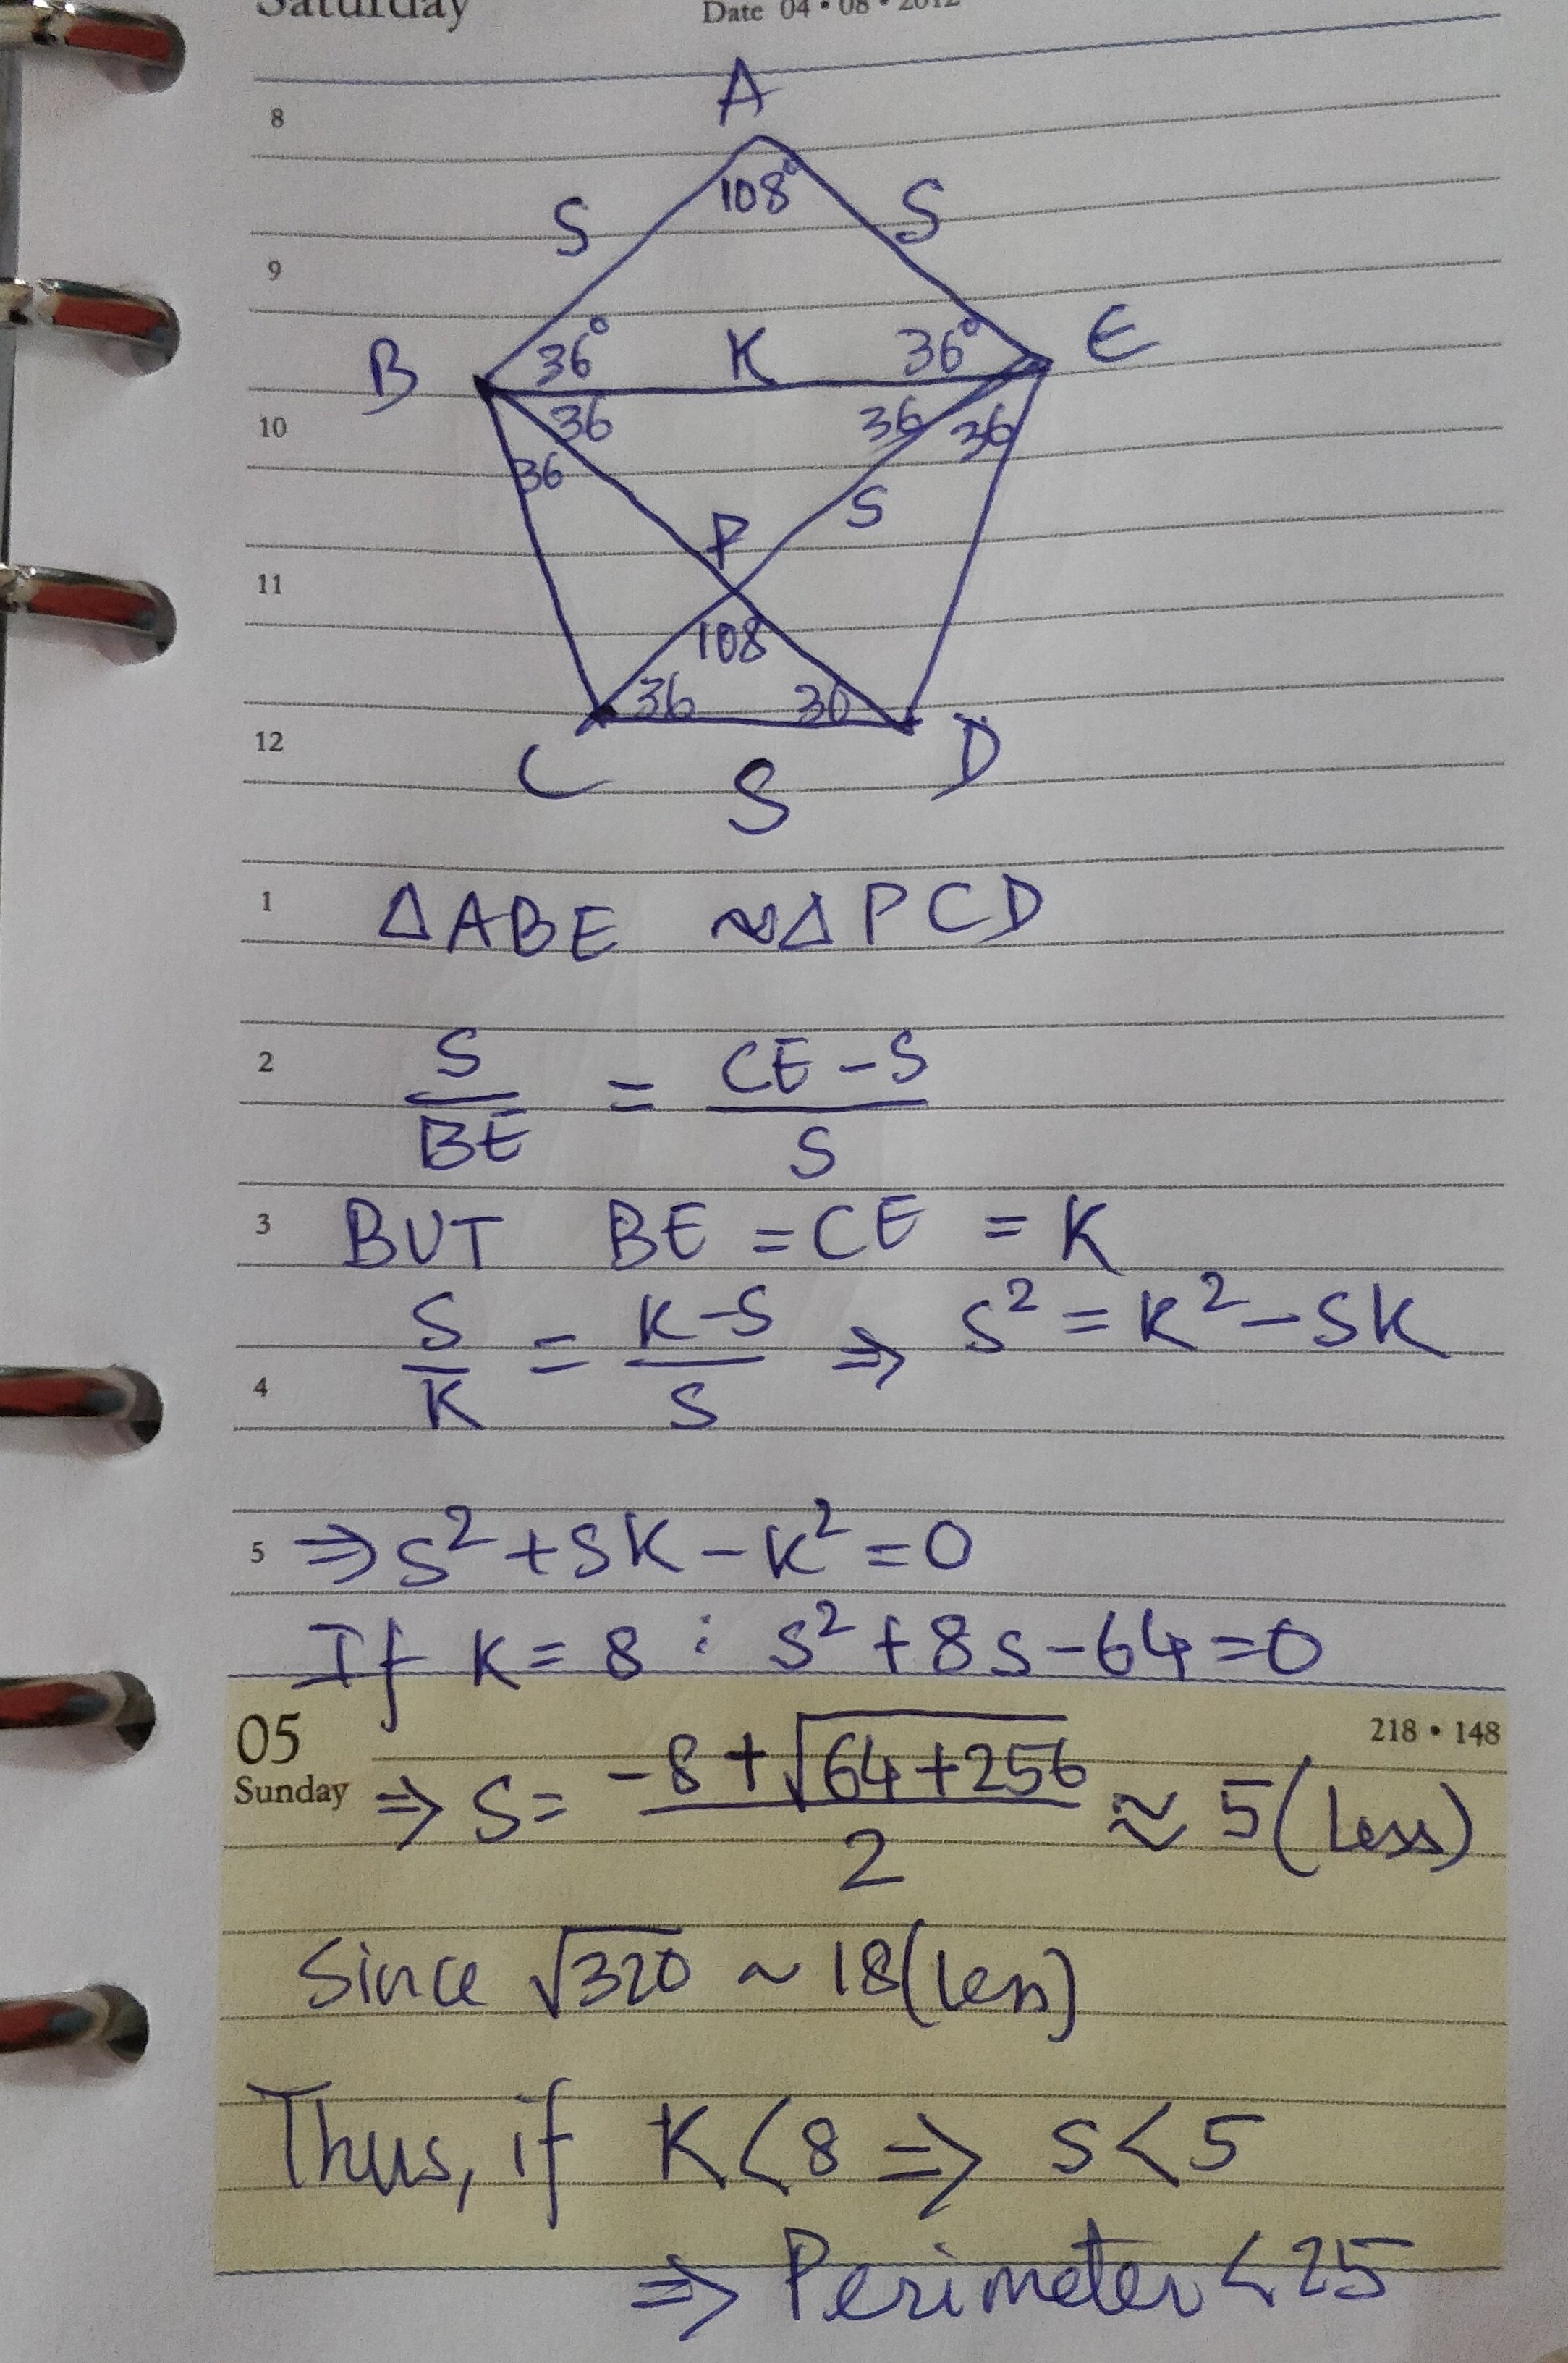 Saturday Date 04 • 08 • 2012
A
8
108°
S S
9
B 36° K 36° E
10 36 36 36
36
S
P
11
108
36 30
12
C S D
1 ΔABE ~ΔPCD
2 S/BE = CE-S/S
3 BUT BE = CE = K
4 S/K = K-S/S ⇒ S² = K² - SK
5 ⇒ S² + SK - K² = 0
If K = 8 : S² + 8S - 64 = 0
05 218 • 148
Sunday ⇒ S = -8 + √64+256/2 ≈ 5 (Less)
Since √320 ~ 18 (Less)
Thus, if K < 8 ⇒ S < 5
⇒ Perimeter < 25